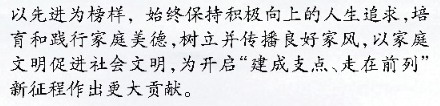 以先进为榜样，始终保持积极向上的人生追求,培
育和践行家庭美德,树立并传播良好家风,以家庭
文明促进社会文明,为开启“建成支点、走在前列”
新征程作出更大贡献。